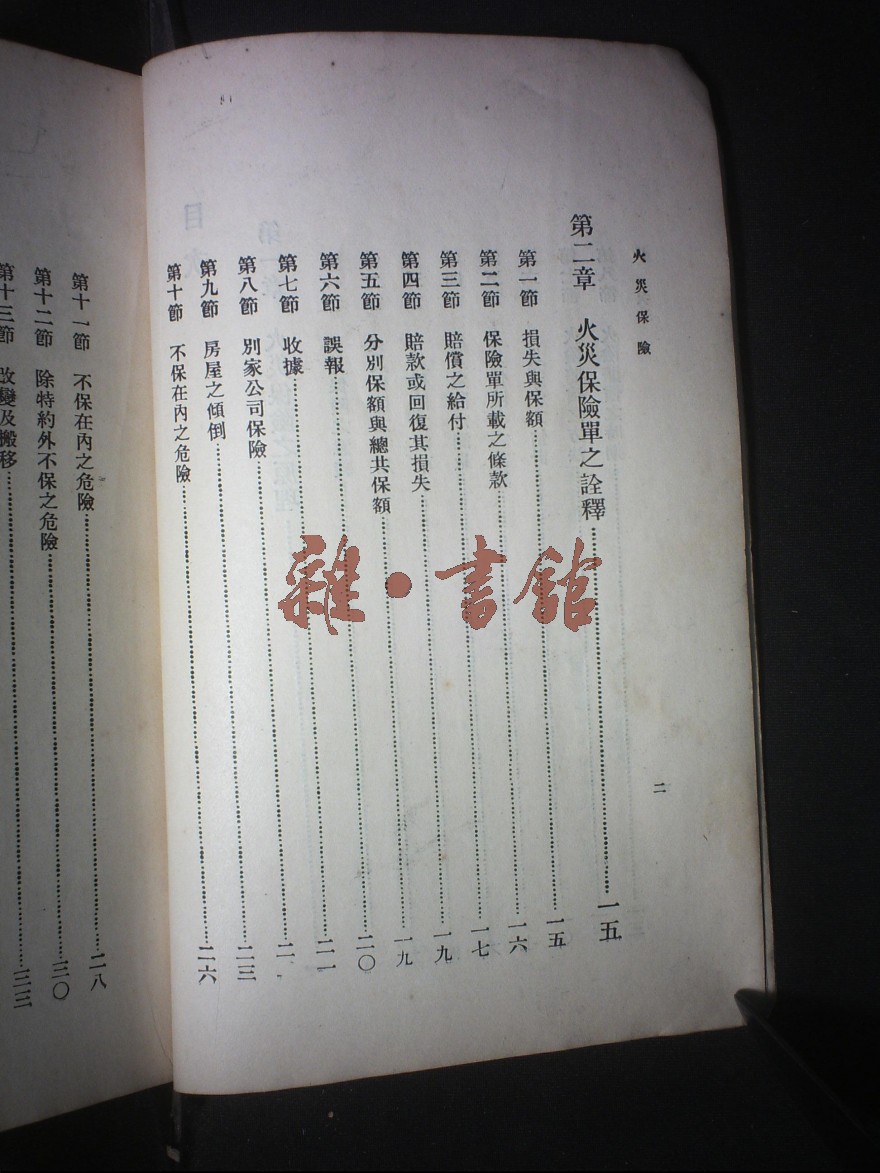 火災保險
二
第二章　火災保險單之詮釋……一五
第一節　損失與保額……一五
第二節　保險單所載之條款……一六
第三節　賠償之給付……一七
第四節　賠款或回復其損失……一九
第五節　分別保額與總共保額……一九
第六節　誤報……二〇
第七節　收據……二一
第八節　別家公司保險……二一
第九節　房屋之傾倒……二三
第十節　不保在內之危險……二六
第十一節　不保在內之危險……二八
第十二節　除特約外不保之危險……三〇
第十三節　改變及搬移……三三
雜·書館